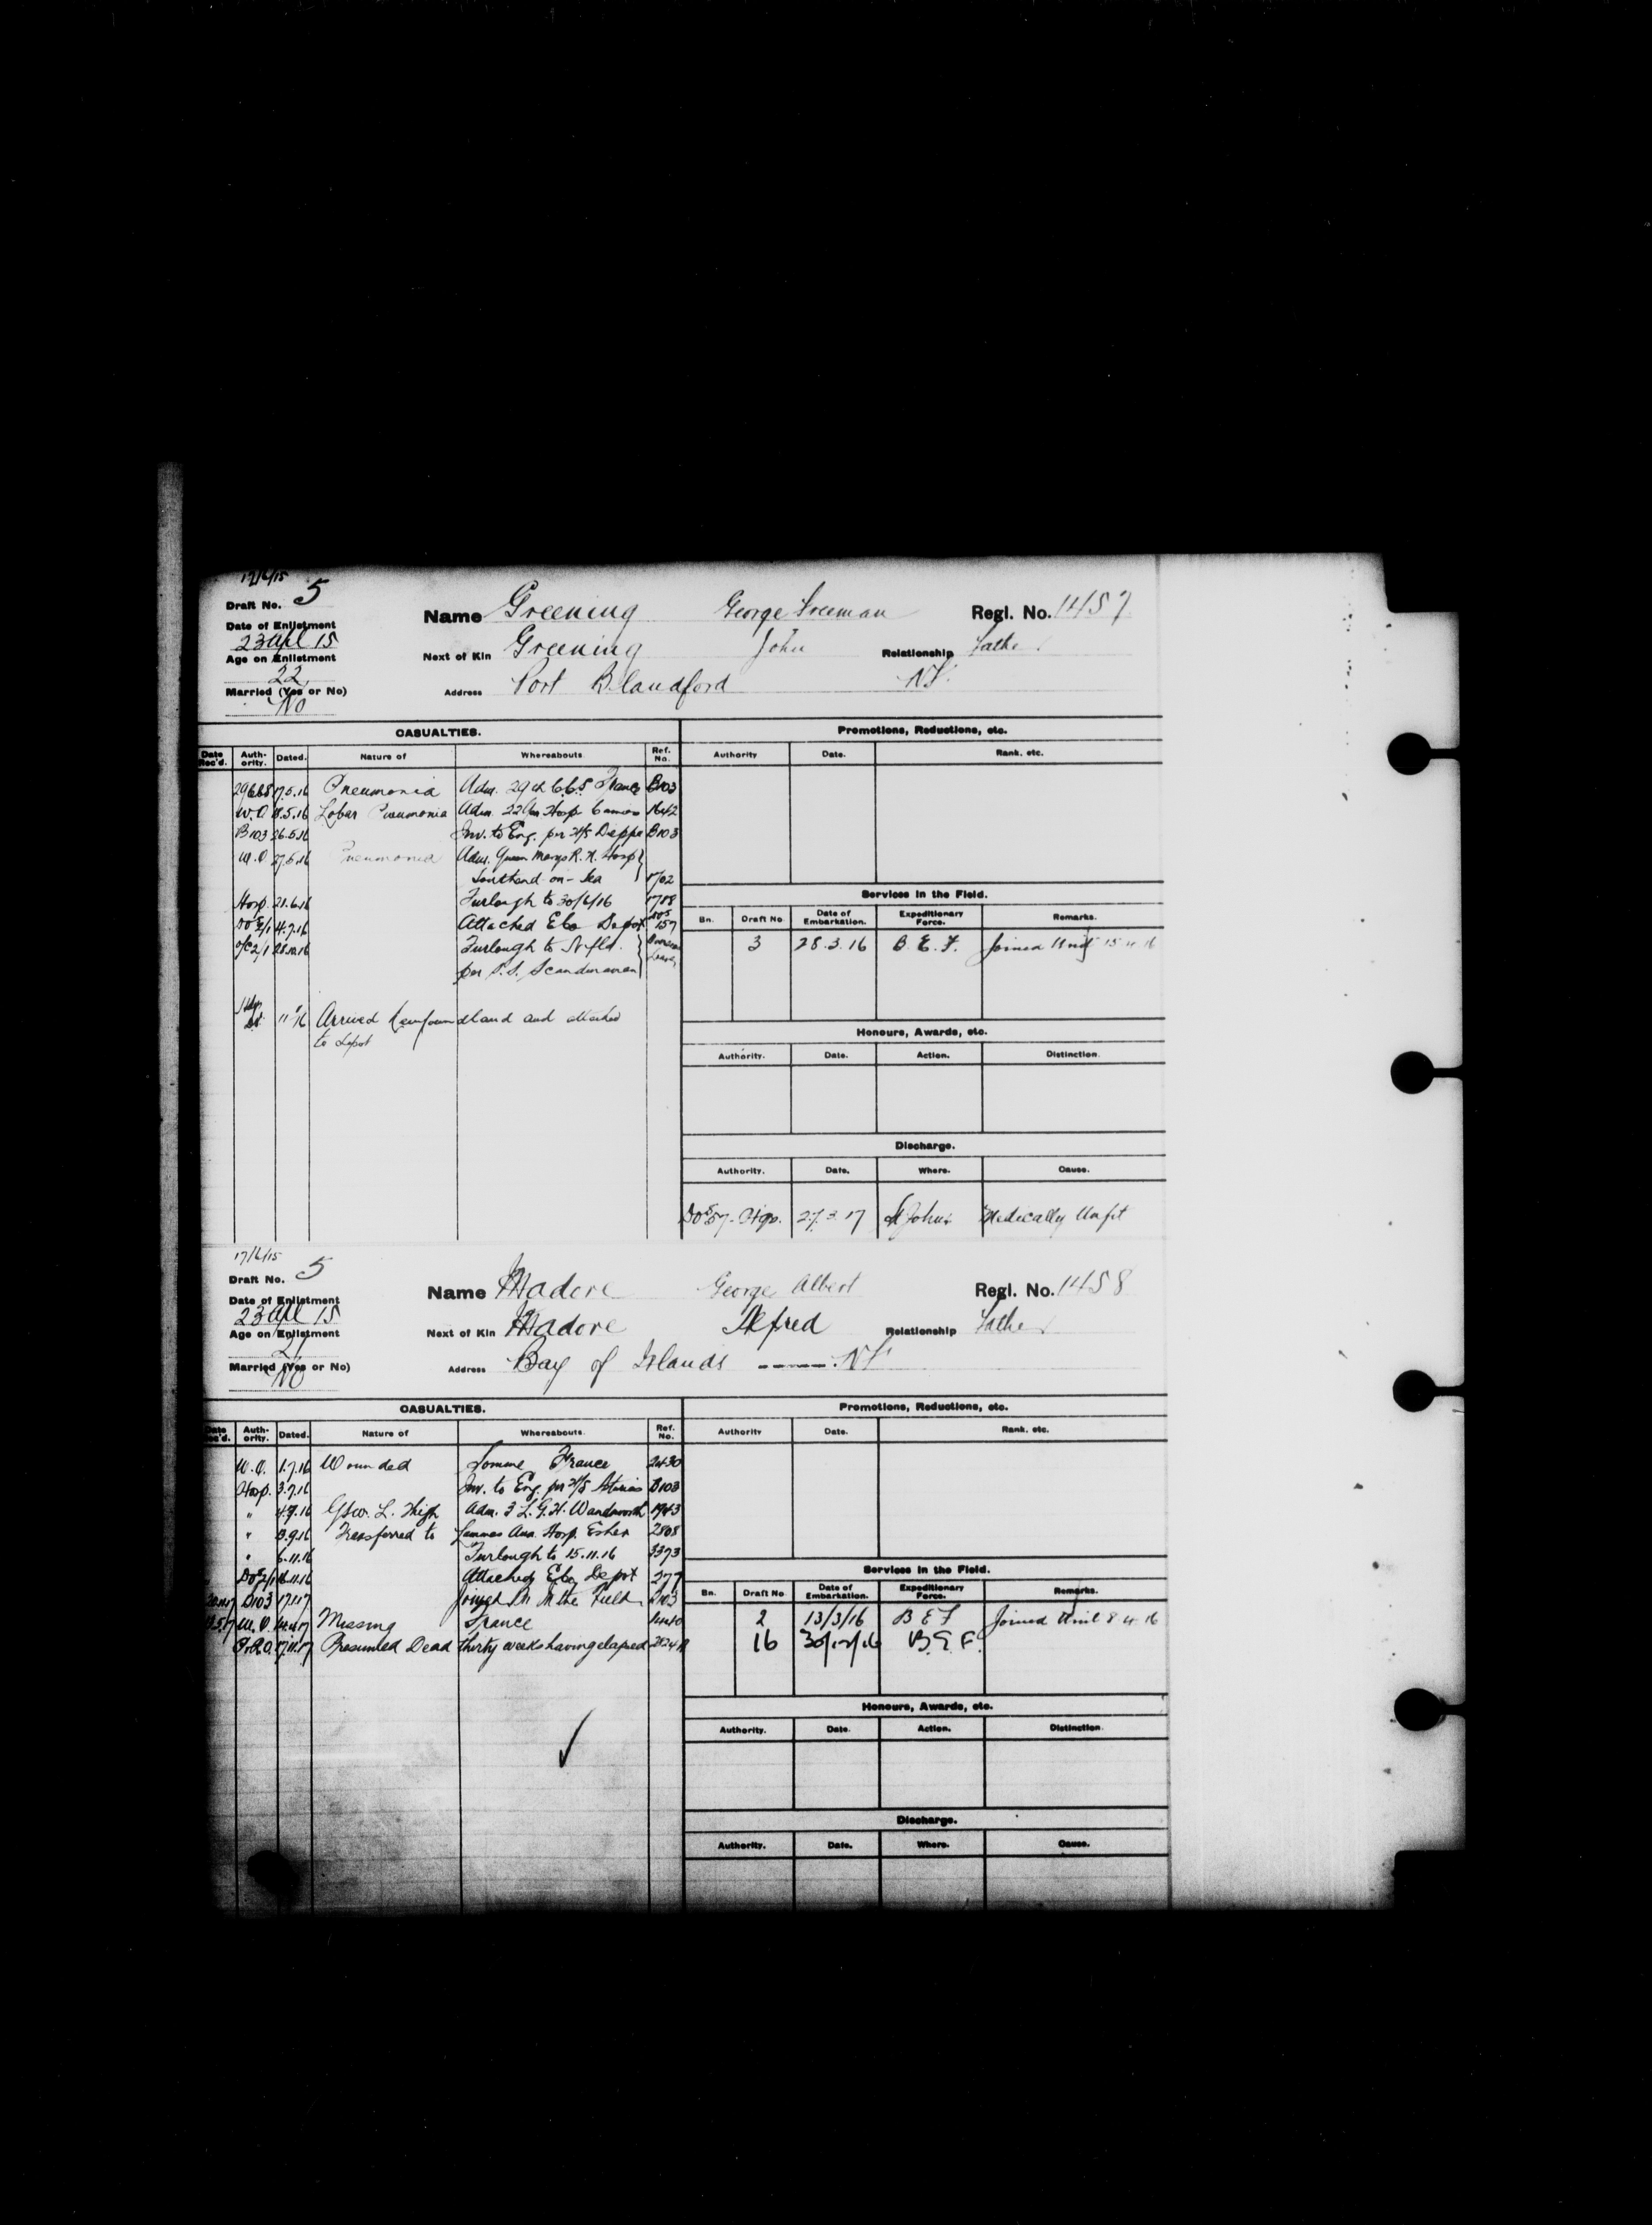 17/6/15
Draft No. 5
Name Greening George Freeman Regl. No. 1457
Date of Enlistment
23 Apl 15
Next of Kin Greening John Relationship Father
Age on Enlistment
22
Address Port Blandford NF.
Married (Yes or No)
No
CASUALTIES. Promotions, Reductions, etc.
Date Rec'd. Auth-ority. Dated. Nature of Whereabouts. Ref. No. Authority Date. Rank. etc.
17.5.16 Pneumonia Adm. 29th C.C.S France B103
W.O 18.5.16 Lobar Pneumonia Adm. 22 Gen Hosp Camiers 1642
B103 26.5.16 Inv. to Eng. per H/S Dieppe B103
W.O 27.5.16 Pneumonia Adm. Queen Marys R. N. Hosp
Southend-on-Sea 1702
Hosp. 21.6.16 Furlough to 30/6/16 1788
4.7.16 Attached Ebo Depot 157
28.10.16 Furlough to Nfld.
per S.S. Scandinavian
11/16 Arrived Newfoundland and attached
to Depot
Services in the Field.
Bn. Draft No Date of Embarkation. Expeditionary Force. Remarks.
3 28.3.16 B.E.F. Joined Unit 15 4 16
Honours, Awards, etc.
Authority. Date. Action. Distinction.
Discharge.
Authority. Date. Where. Cause.
27.3.17 St Johns Medically Unfit
17/6/15
Draft No. 5
Name Madore George Albert Regl. No. 1458
Date of Enlistment
23 Apl 15
Next of Kin Madore Alfred Relationship Father
Age on Enlistment
21
Address Bay of Islands ----- NF
Married (Yes or No)
No
CASUALTIES. Promotions, Reductions, etc.
Date Rec'd. Auth-ority. Dated. Nature of Whereabouts. Ref. No. Authority Date. Rank. etc.
W.O. 1.7.16 Wounded Somme France 2430
Hosp. 3.7.16 Inv. to Eng. per H/S Asturias B103
" 4.7.16 Gsw. L. Thigh Adm. 3 L.G.H. Wandsworth 1943
" 13.9.16 Transferred to Hosp. Esher 2808
" 6.11.16 Furlough to 15.11.16 3373
16.11.16 Attached Ebo Depot 277
B103 17.1.17 Joined Bn In the Field B103
W.O. 14.4.17 Missing France 4440
17.11.17 Presumed Dead thirty weeks having elapsed
Services in the Field.
Bn. Draft No Date of Embarkation. Expeditionary Force. Remarks.
2 13/3/16 B E F Joined Unit 8 4 16
16 30/12/16 B.E.F.
Honours, Awards, etc.
Authority. Date. Action. Distinction.
Discharge.
Authority. Date. Where. Cause.